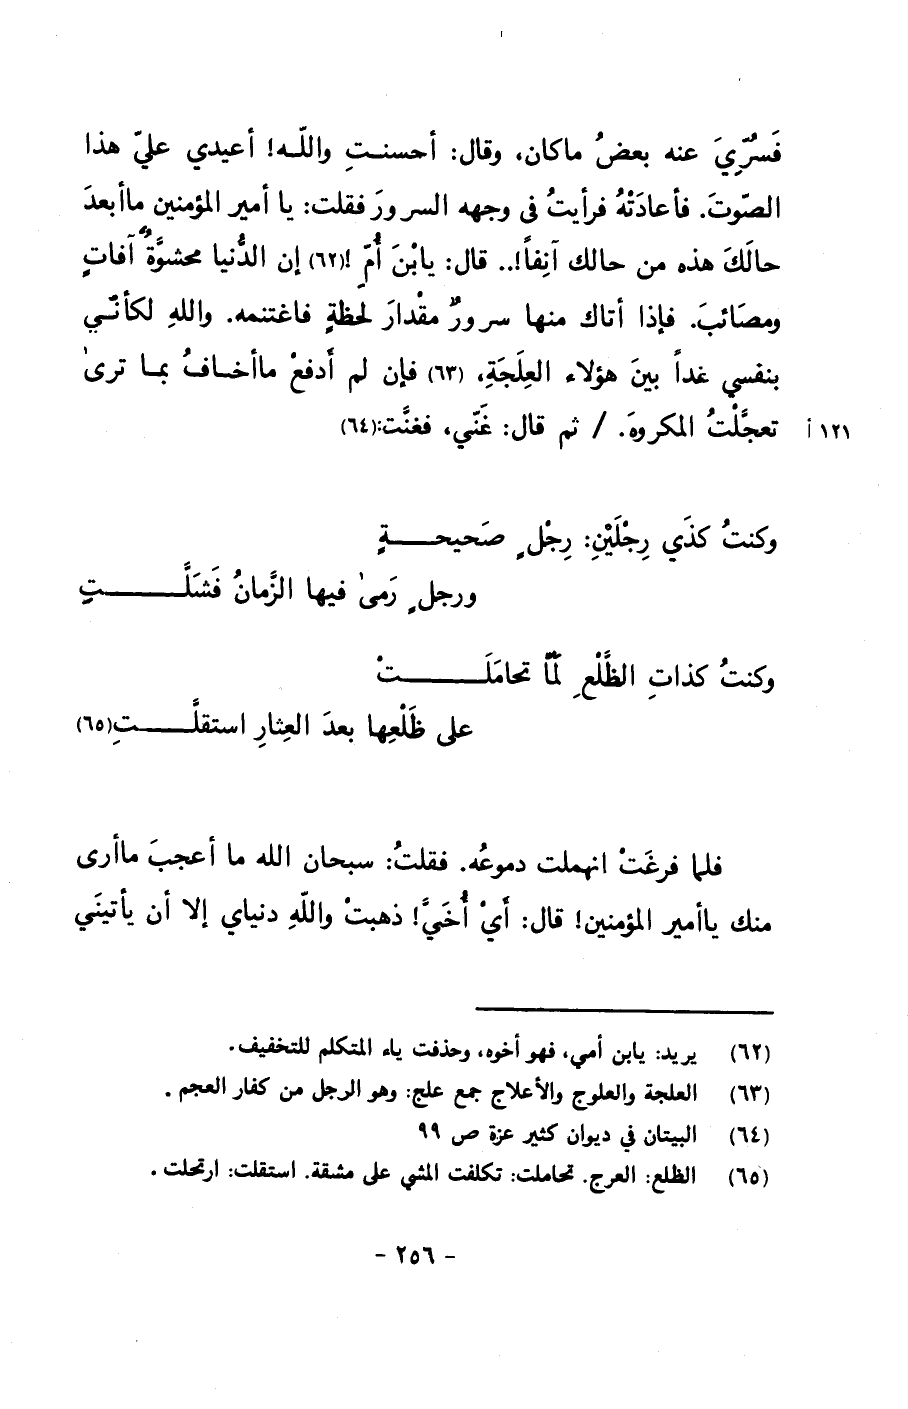 فَسُرِّيَ عنه بعضُ ماكان، وقال: أحسنـتِ واللّـه! أعيدي عليّ هذا
الصّوتَ. فأعادَتْهُ فرأيتُ في وجهه السرورَ فقلت: يا أمير المؤمنين ماأبعدَ
حالَكَ هذه من حالك آنِفاً!.. قال: يابْنَ أُمِّ !(٦٢) إن الدُّنيا محشوَّةٌ آفاتٍ
ومصَائبَ. فإذا أتاك منها سرورٌ مقْدارَ لحظةٍ فاغتنمه. واللهِ لكأنّـي
بنفسي غداً بينَ هؤلاء العِلَجَةِ، (٦٣) فإن لم أدفعْ ماأخـافُ بمـا ترىٰ
تعجَّلْتُ المكروهَ. / ثم قال: غَنّي، فغنَّت:(٦٤)
١٢١ أ
وكنتُ كذَي رِجْلَيْنِ: رِجْلٍ صَحيحــــةٍ
ورجلٍ رَمىٰ فيها الزَّمانُ فَشَلَّــــــتِ
وكنتُ كذاتِ الظَّلْعِ لَمّا تحامَلَــــــتْ
على ظَلْعِها بعدَ العِثارِ استقلَّــــتِ(٦٥)
فلما فرغَتْ انهملت دموعُه. فقلتُ: سبحان الله ما أعجبَ ماأرى
منك ياأمير المؤمنين! قال: أَيْ أُخَيَّ! ذهبتْ واللّهِ دنياي إلا أن يأتينَي
(٦٢) يريد: يابن أمي، فهو أخوه، وحذفت ياء المتكلم للتخفيف.
(٦٣) العلجة والعلوج والأعلاج جمع علج: وهو الرجل من كفار العجم .
(٦٤) البيتان في ديوان كثير عزة ص ٩٩
(٦٥) الظلع: العرج. تحاملت: تكلفت المشي على مشقة. استقلت: ارتحلت .
- ٢٥٦ -